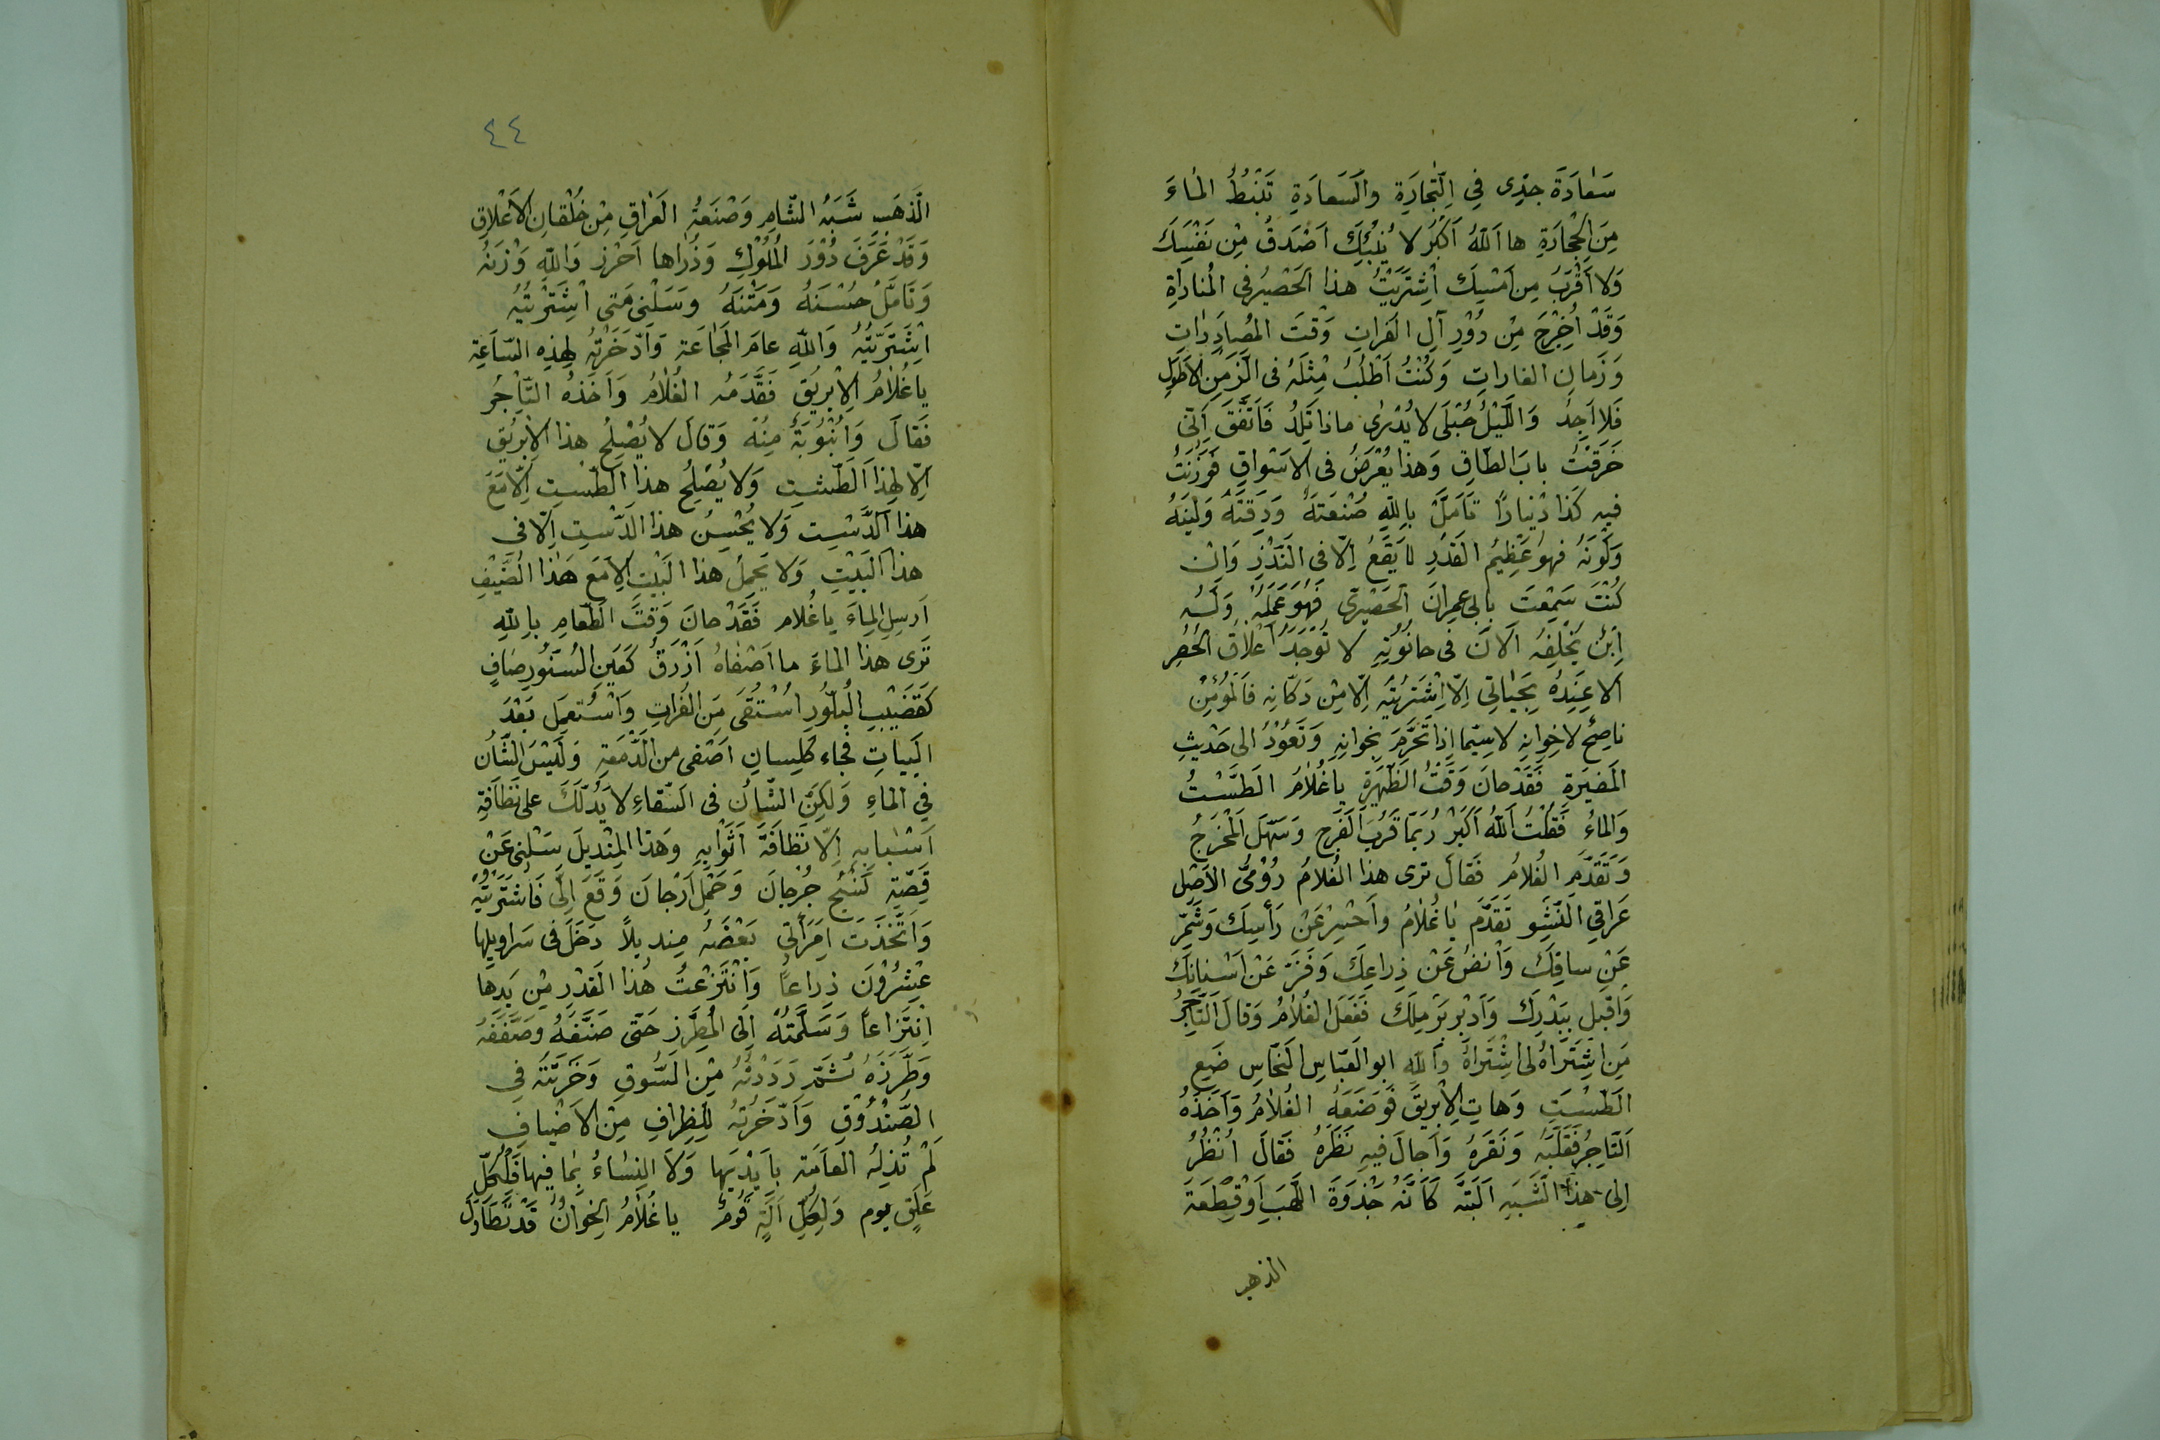 سَعَادَةَ جَدِّى فِي التِّجَارَةِ والسَّعادَةِ تَنْبُطُ الماءَ
مِنَ الحِجَارَةِ ها اَللّهُ اَكْبَرُ لا يُنْبِئُكَ اَصْدَقُ مِنْ نَفْسِكَ
وَلا اَقْرَبُ مِنْ اَمْسِكَ اُشْتَرَيْتُ هذا الحَصْيُر فى المُنادَاةِ
وَقَدْ اُخْرِجَ مِنْ دُوْرِ آلِ الفُراتِ وَقْتَ المُصادَراتِ
وَزَمانِ الغاراتِ وَكُنْتُ اَطْلُبُ مِثْلَهُ فى الزَّمَنِ الاَطوَلِ
فَلا اَجِدُ وَاللَّيْلُ حُبْلَى لا يُدْرى ماذا تَلِدُ فَاتَّفَقَ اَنّى
حَرَقْتُ بابَ الطاقِ وَهذا يُعْرَضُ فى الاَسْواقِ فَوَزَنْتُ
فيهِ كَذا دْيناراً تَاَمَلَّ باللّهِ صُنْعَتَهُ وَدِقَتَّهُ وَلينَهُ
وَلَوْنَهُ فهوُ عَظِيمُ القَدْرِ لا يَقَعُ اِلّا فى النَدْرِ وَانْ
كُنْتَ سَمِعْتَ بابى عِمرانَ الحَصْيرى فَهُوَ عَمَلَهُ وَلَهُ
اِبْنٌ يَخْلِفُهُ الآنَ فى حانُوتِهِ لا تُوْجَدُ اَعْلاقُ الحُصْرِ
الا عِنِدهُ بِحَيْاتى اِلّا اشْتَرَيْتَه اِلّا مِنْ دَكّانِه فَالمُؤمِنُ
ناصِحٌ لاخِوانِهِ لاسِيّما اِذا تَحَرَّمَ بِخوانِهِ وَنَعُوْدُ الى حَدْيثِ
المَضيَرةِ فَقَدْ حانَ وَقْتُ الظّهَرةِ ياغُلامُ الطَسْتُ
وَالماءُ فَقُلْتُ اَللّهُ اَكْبَرْ رُبَمّا قَرُبَ الفَرَج وَسَهّلَ المَخْرَجُ
وَتَقَدَّمَ الغُلامُ فَقالَ ترى هذا الغُلامُ رُوْمىُّ الاَصْلِ
عَراقي النَّشِو تَقَدَّم ياغُلامُ واَحْسِرْ عَنْ رَأسِكَ وَشَمّر
عَنْ ساقِكَ وَانضُ عَنْ ذِراعِكَ وَفَرّ عَنْ اَسْنانِكَ
وَاقْبِل بِبَدْرِكَ وَادْبِر بَرَملِكَ فَفَعَلَ الغُلامُ وَقالَ التّاجِرُ
مَنِ اشْتَراهُ لى اشْتَراهُ واللّهِ ابوالعَبّاسِ النَخّاسِ ضَعِ
الطَسْتَ وَهاتِ الاِبْريقَ فَوضَعَهُ الغُلامُ وَاَخَذَهُ
اَلتّاجِرُ فَقَلَّبَهُ وَنَقَرَهُ وَاَجالَ فيهِ نَظَرَهُ فَقالَ انْظُرْ
اِلى هذا الشَبَهِ اَلبَتَّه كَاَنّهُ جُذوَةَ اللَّهَبِ اَوْ قِطْعَةَ
الذهب
٤٤
الذّهَبِ شَبَهُ الشّامِ وَصْنَعَةُ العَراقِ مِنْ خُلْقانِ الاَعْلاقِ
وَقَدْ عَرَفَ دُوْرَ المُلُوْكِ وَذُراها اَحْرزِ وَاللّهِ وَزْنَهُ
وَتَامَّلْ حُسْنَهُ وَمَتْنَهُ وَسَلْنى مَتى اشْتَرَيْتُهُ
اِشْتَرَيْتُهُ وَاللّهِ عامَ المَجاعَةِ وَادّخَرْتُهُ لِهذِهِ السّاعَةِ
ياغُلامُ الاِبْريَقَ فَقَدَّمَهُ الغُلامُ وَاَخَذَهُ التّاجِرُ
فَقالَ وَاُنْبُوْبَهُ مِنْهُ وَقالَ لا يُصْلِحُ هذا الاِبْريْق
اِلّا لِهذَا الطَّسْتِ وَلا يُصْلِحُ هذا الطَّسْتِ اِلّا مَعَ
هذا الدَّسْتِ وَلا يُحْسِنُ هذا الدَّسْتِ اِلّا فى
هذا البَيْتِ وَلا يَجمِلُ هذا البَيْتِ اِلاّ مَعَ هذا الضَّيْفِ
اَرسِلِ الماءَ ياغُلام فَقَدْ حانَ وَقْتَ الطّعامِ باللّهِ
تَرى هذا الماءَ ما اَصْفاهُ اَزْرَقُ كَعَينِ السِنّوْرِ صافٍ
كَقَضَيْبِ البلّوْرِ اسْتُقى مِنَ الفُراتِ وَاسْتُعِمل بَعْدَ
البَياتِ فجاء كَلِسانِ اَصْفى من الدّمَعةِ وَلَيْسَ الشّاُن
فِي الماءِ وَلكِنّ الشّاُن فى السّقاءِ لا يَدُلّكَ على نَظافَةِ
اَسْبابِهِ اِلّا نَظافَةَ اَثْوابِهِ وَهَذا المِنْديلَ سَلْنى عَنْ
قِصّتِهِ نَسْجُ جُرْجانَ وَعَمْلِ اَرْجانَ وَقَعَ اِلَىّ فَاشْتَرَيْتُهُ
وَاتّخَذَتَ امَرأتى بَعْضَهُ مِنديلاً دَخَلَ فى سَراويلِها
عِشْرُوْنَ ذِراعاً وَانْتَزَعْتُ هذا القَدْرِ مِنْ يَدِها
اِنْتِزاعاً وَسَلّمَتُهُ اِلى المُطَرّزِ حَتّى صَنَعَهُ وَصَفَفَهُ
وَطَرّزَهُ ثُمّ رَدَدْتُهُ مِنَ السُّوقِ وَخَزَنْتَهُ في
الصُّنْدُوْقِ وَادّخَرْتُهُ لِلظِرافِ مِنَ الاَضْيافِ
لَمْ تُذِلهُ العامَة بِاَيْديَها وَلاَ النِساءُ بِما فيها فَلِكُلّ
عَلَقٍ يوم وَلِكُلّ اَلَةٍ قُومٌ ياغُلامُ الخِوانُ قَدْ تَطاوَلَ